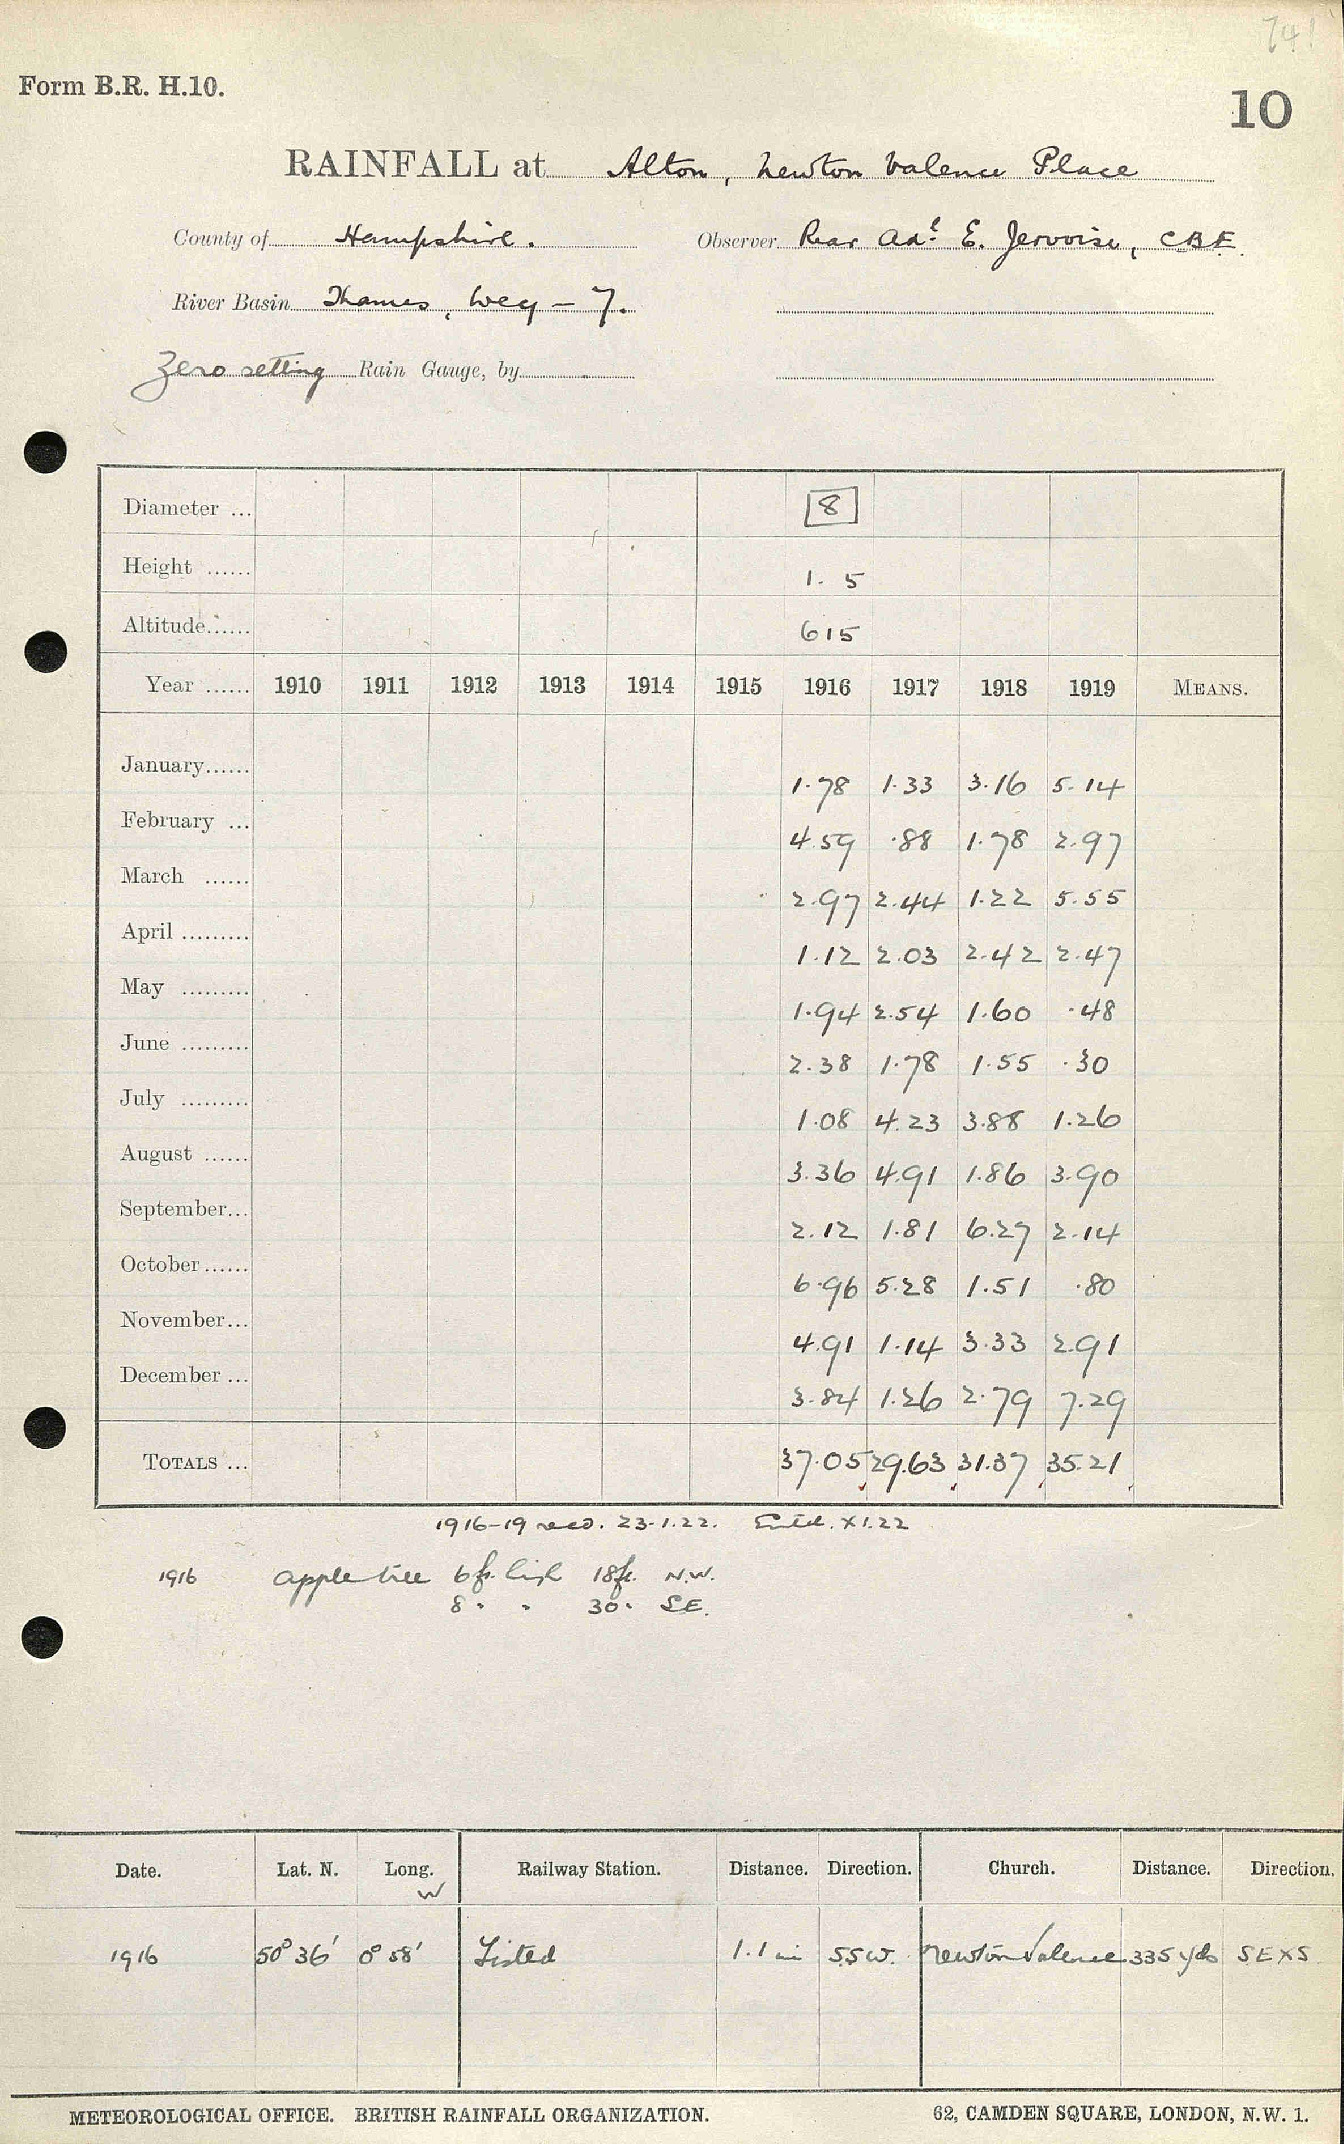 741
Form B.R. H.10.
10
RAINFALL at Alton, Newton Valence Place
County of Hampshire. Observer Rear Adl. E. Jervoise, CBE.
River Basin Thames, Wey - 7.
Zero setting Rain Gauge, by
Diameter ... 8
Height ...... 1. 5
Altitude...... 615
Year ...... 1910 1911 1912 1913 1914 1915 1916 1917 1918 1919 MEANS.
January...... 1.78 1.33 3.16 5.14
February ... 4.59 .88 1.78 2.97
March ...... 2.97 2.44 1.22 5.55
April ......... 1.12 2.03 2.42 2.47
May ......... 1.94 2.54 1.60 .48
June ......... 2.38 1.78 1.55 .30
July ......... 1.08 4.23 3.88 1.26
August ...... 3.36 4.91 1.86 3.90
September... 2.12 1.81 6.27 2.14
October ...... 6.96 5.28 1.51 .80
November... 4.91 1.14 3.33 2.91
December ... 3.84 1.26 2.79 7.29
TOTALS ... 37.05 29.63 31.37 35.21
1916-19 recd. 23.1.22. Entd. XI.22
1916 apple tree 6ft. high 18ft. N.W.
8 " " 30 " S.E.
Date. Lat. N. Long. Railway Station. Distance. Direction. Church. Distance. Direction.
W
1916 50° 36' 0° 58' Tisted 1.1 m SSW. Newton Valence 335 yds SEXS
METEOROLOGICAL OFFICE. BRITISH RAINFALL ORGANIZATION. 62, CAMDEN SQUARE, LONDON, N.W. 1.